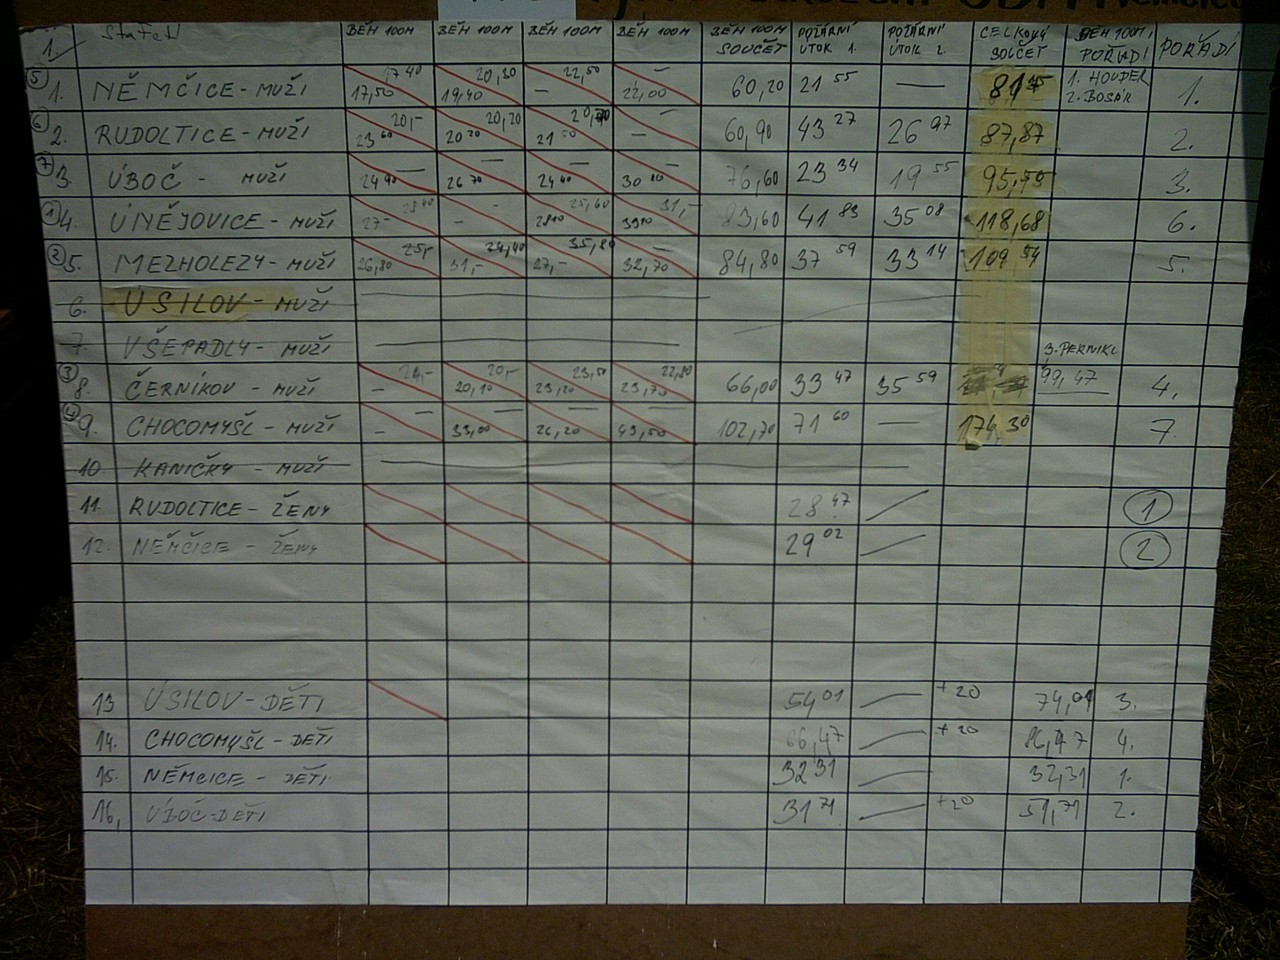 BĚH 100M BĚH 100M BĚH 100M BĚH 100M BĚH 100M SOUČET POŽÁRNÍ ÚTOK 1. POŽÁRNÍ ÚTOK 2. CELKOVÝ SOUČET BĚH 100M, POŘADÍ POŘADÍ
5 1. NĚMČICE - MUŽI 17,50 17 40 19,40 20,30 — 22,50 22,00 — 60,20 21 55 — 1. HOUDEK 2. BOSÁK 1.
6 2. RUDOLTICE - MUŽI 23 60 20,- 20 20 20,20 21 — — 60,90 43 27 26 97 87,87 2.
7 3. ÚBOČ - MUŽI 24 90 — 26 70 — 24 40 — — 76,60 23 34 19 55 3.
1 4. ÚNĚJOVICE - MUŽI 27 - - — 31,- 83,60 41 83 35 08 118,68 6.
2 5. MEZHOLEZY - MUŽI 26,80 25,- 31,- 24,40 27,- 35,80 32,70 — 84,80 37 59 33 14 109 54 5.
6. ÚSILOV - MUŽI
7 VŠEPADLY - MUŽI
3. PERNIKL
3 8. ČERNÍKOV - MUŽI - 20,10 20,- 23,20 23,50 23,70 22,80 66,00 33 47 35 59 99,47 4.
4 9. CHOCOMYŠL - MUŽI - — 33,00 — 26,20 — 43,50 — 102,70 71 60 — 174,30 7.
10 KANIČKY - MUŽI
11. RUDOLTICE - ŽENY 28 47 1
12. NĚMČICE - ŽENY 29 02 2
13 ÚSILOV - DĚTI 54 01 +20 74,01 3.
14. CHOCOMYŠL - DĚTI 66,47 +20 86,47 4.
15. NĚMČICE - DĚTI 32 31 32,31 1.
16, ÚBOČ - DĚTI 31 71 +20 51,71 2.